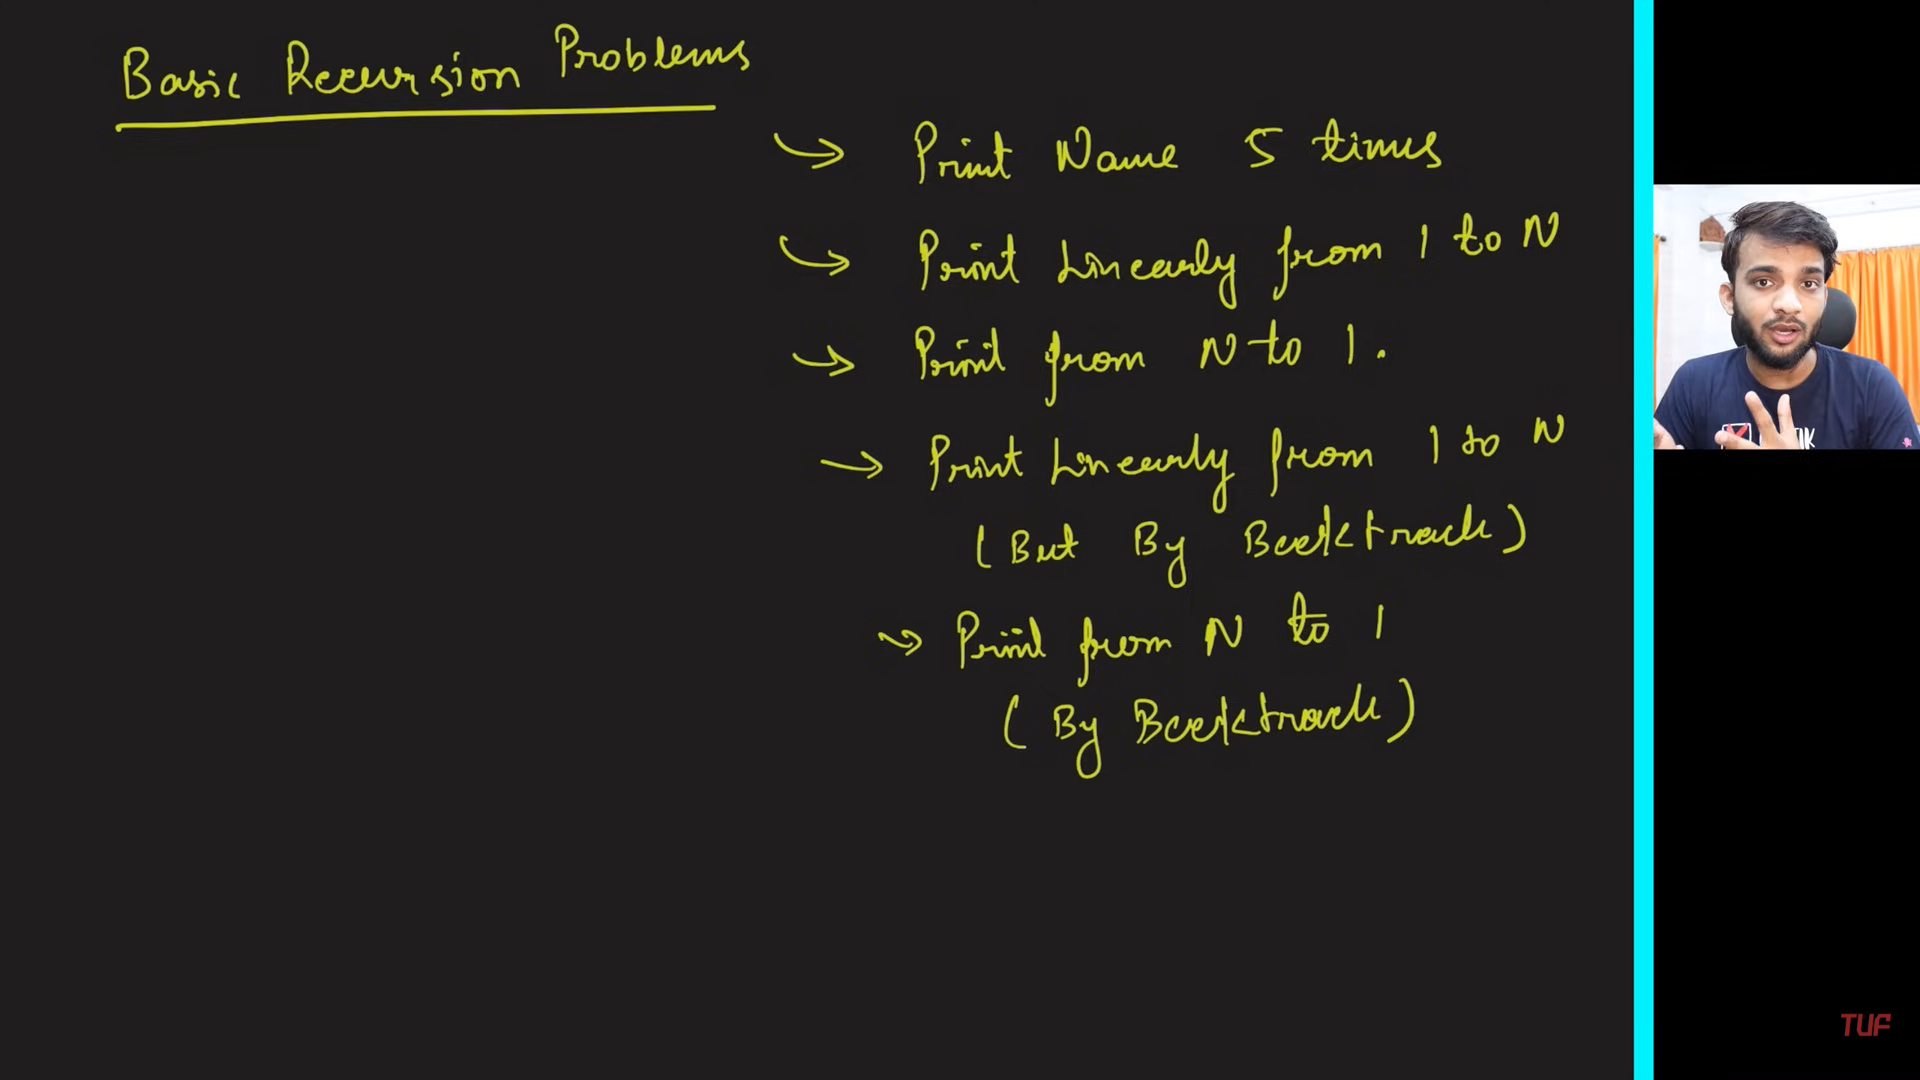 Basic Recursion Problems
Print Name 5 times
Print Linearly from 1 to N
Print from N to 1.
Print Linearly from 1 to N
(But By Backtrack)
Print from N to 1
(By Backtrack)
TUF